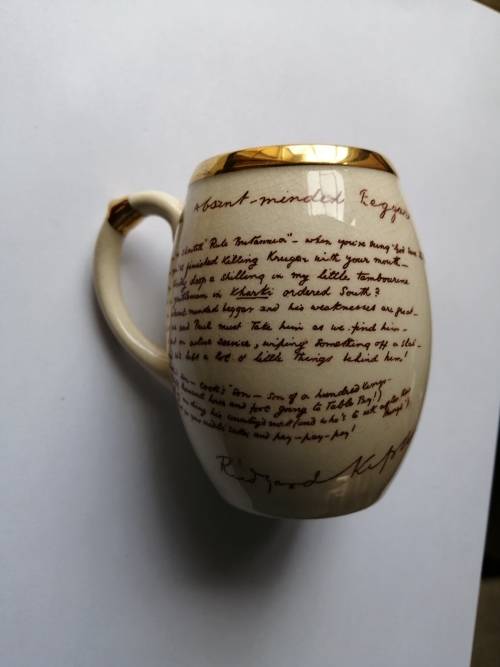 Absent-minded Beggar
"Rule Britannia" - when you've sung
finished killing Kruger with your mouth -
drop a shilling in my little tambourine
gentleman in Kharki ordered South?
minded beggar and his weaknesses are great -
and Paul must take him as we find him -
on active service, wiping something off a slate -
he's left a lot o' little things behind him!
son - Cook's son - son of a hundred kings -
thousand horse and foot going to Table Bay!)
doing his country's work (and who's to look after
things?)
your credit's sake and pay - pay - pay!
Rudyard Kipling